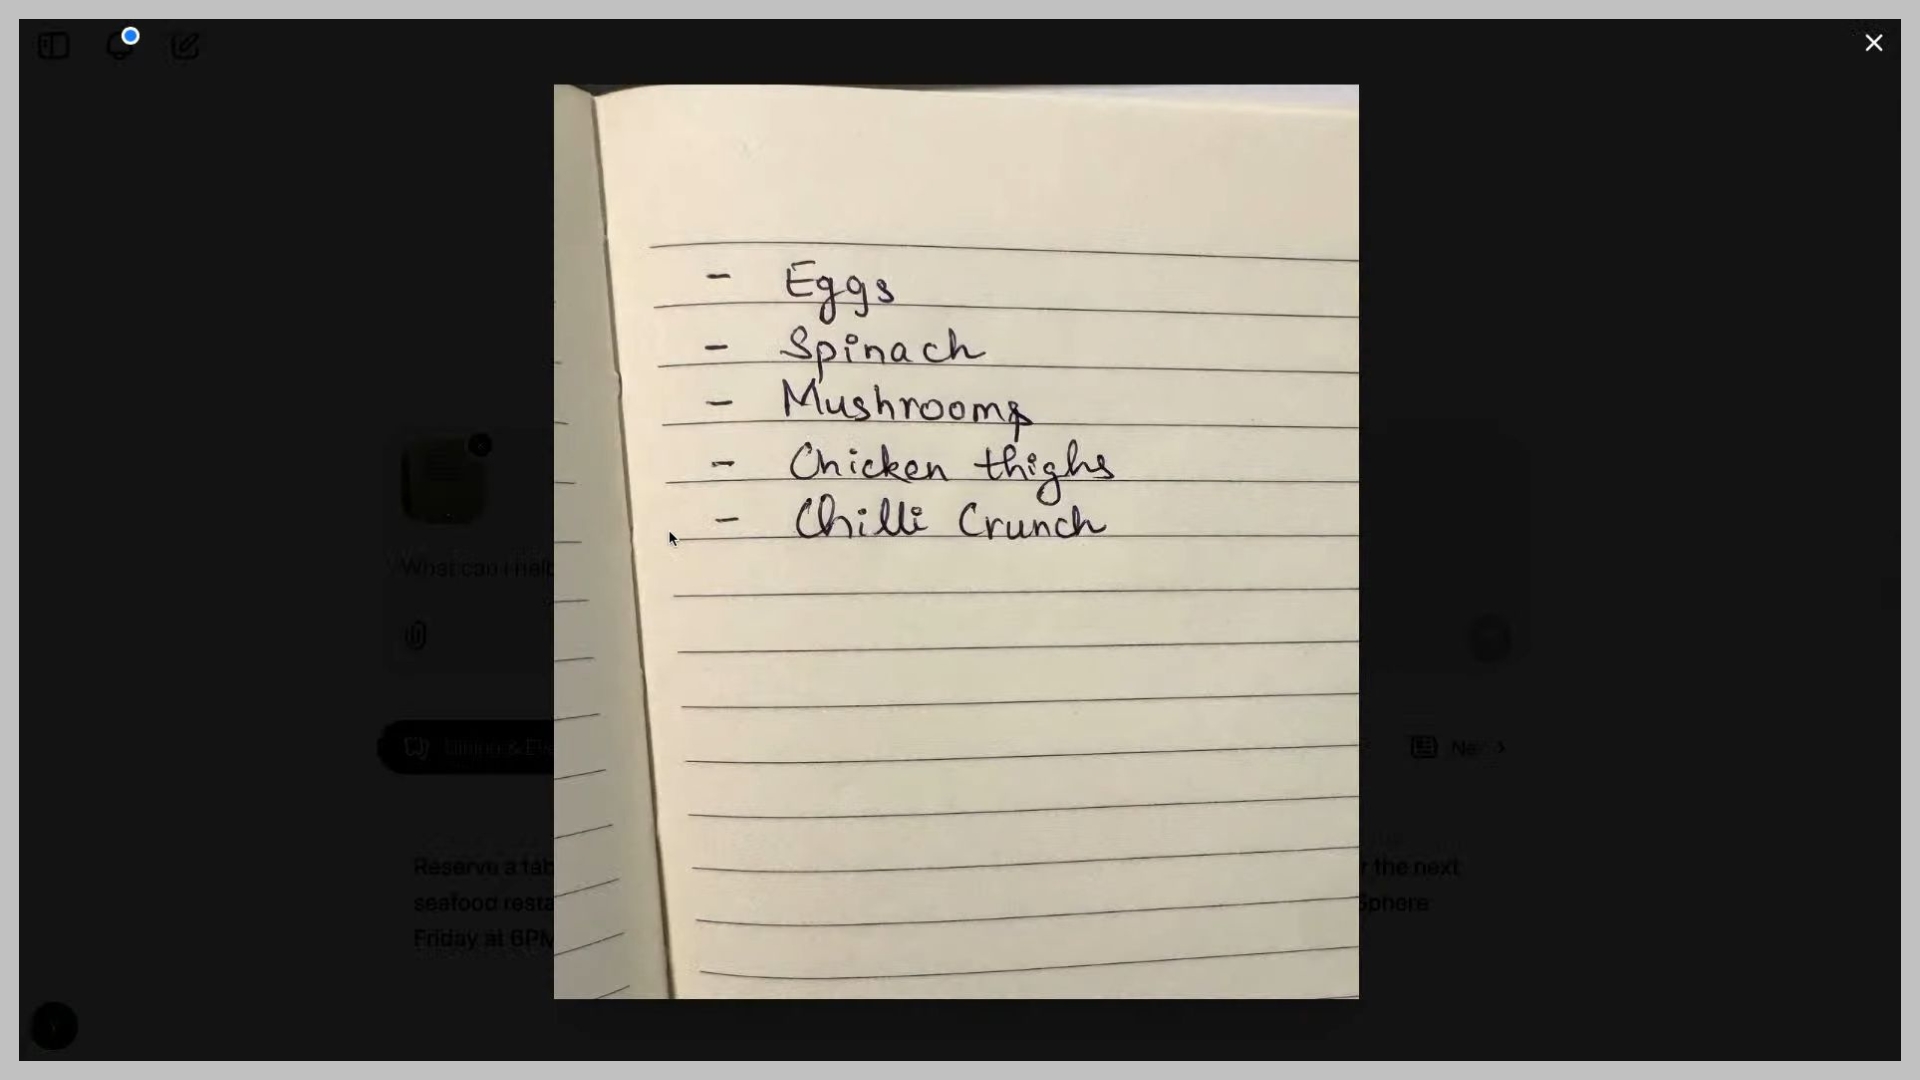 - Eggs
- Spinach
- Mushrooms
- Chicken thighs
- Chilli Crunch
What can I help
Reserve a tab
seafood resta
Friday at 6PM
the next
Sphere